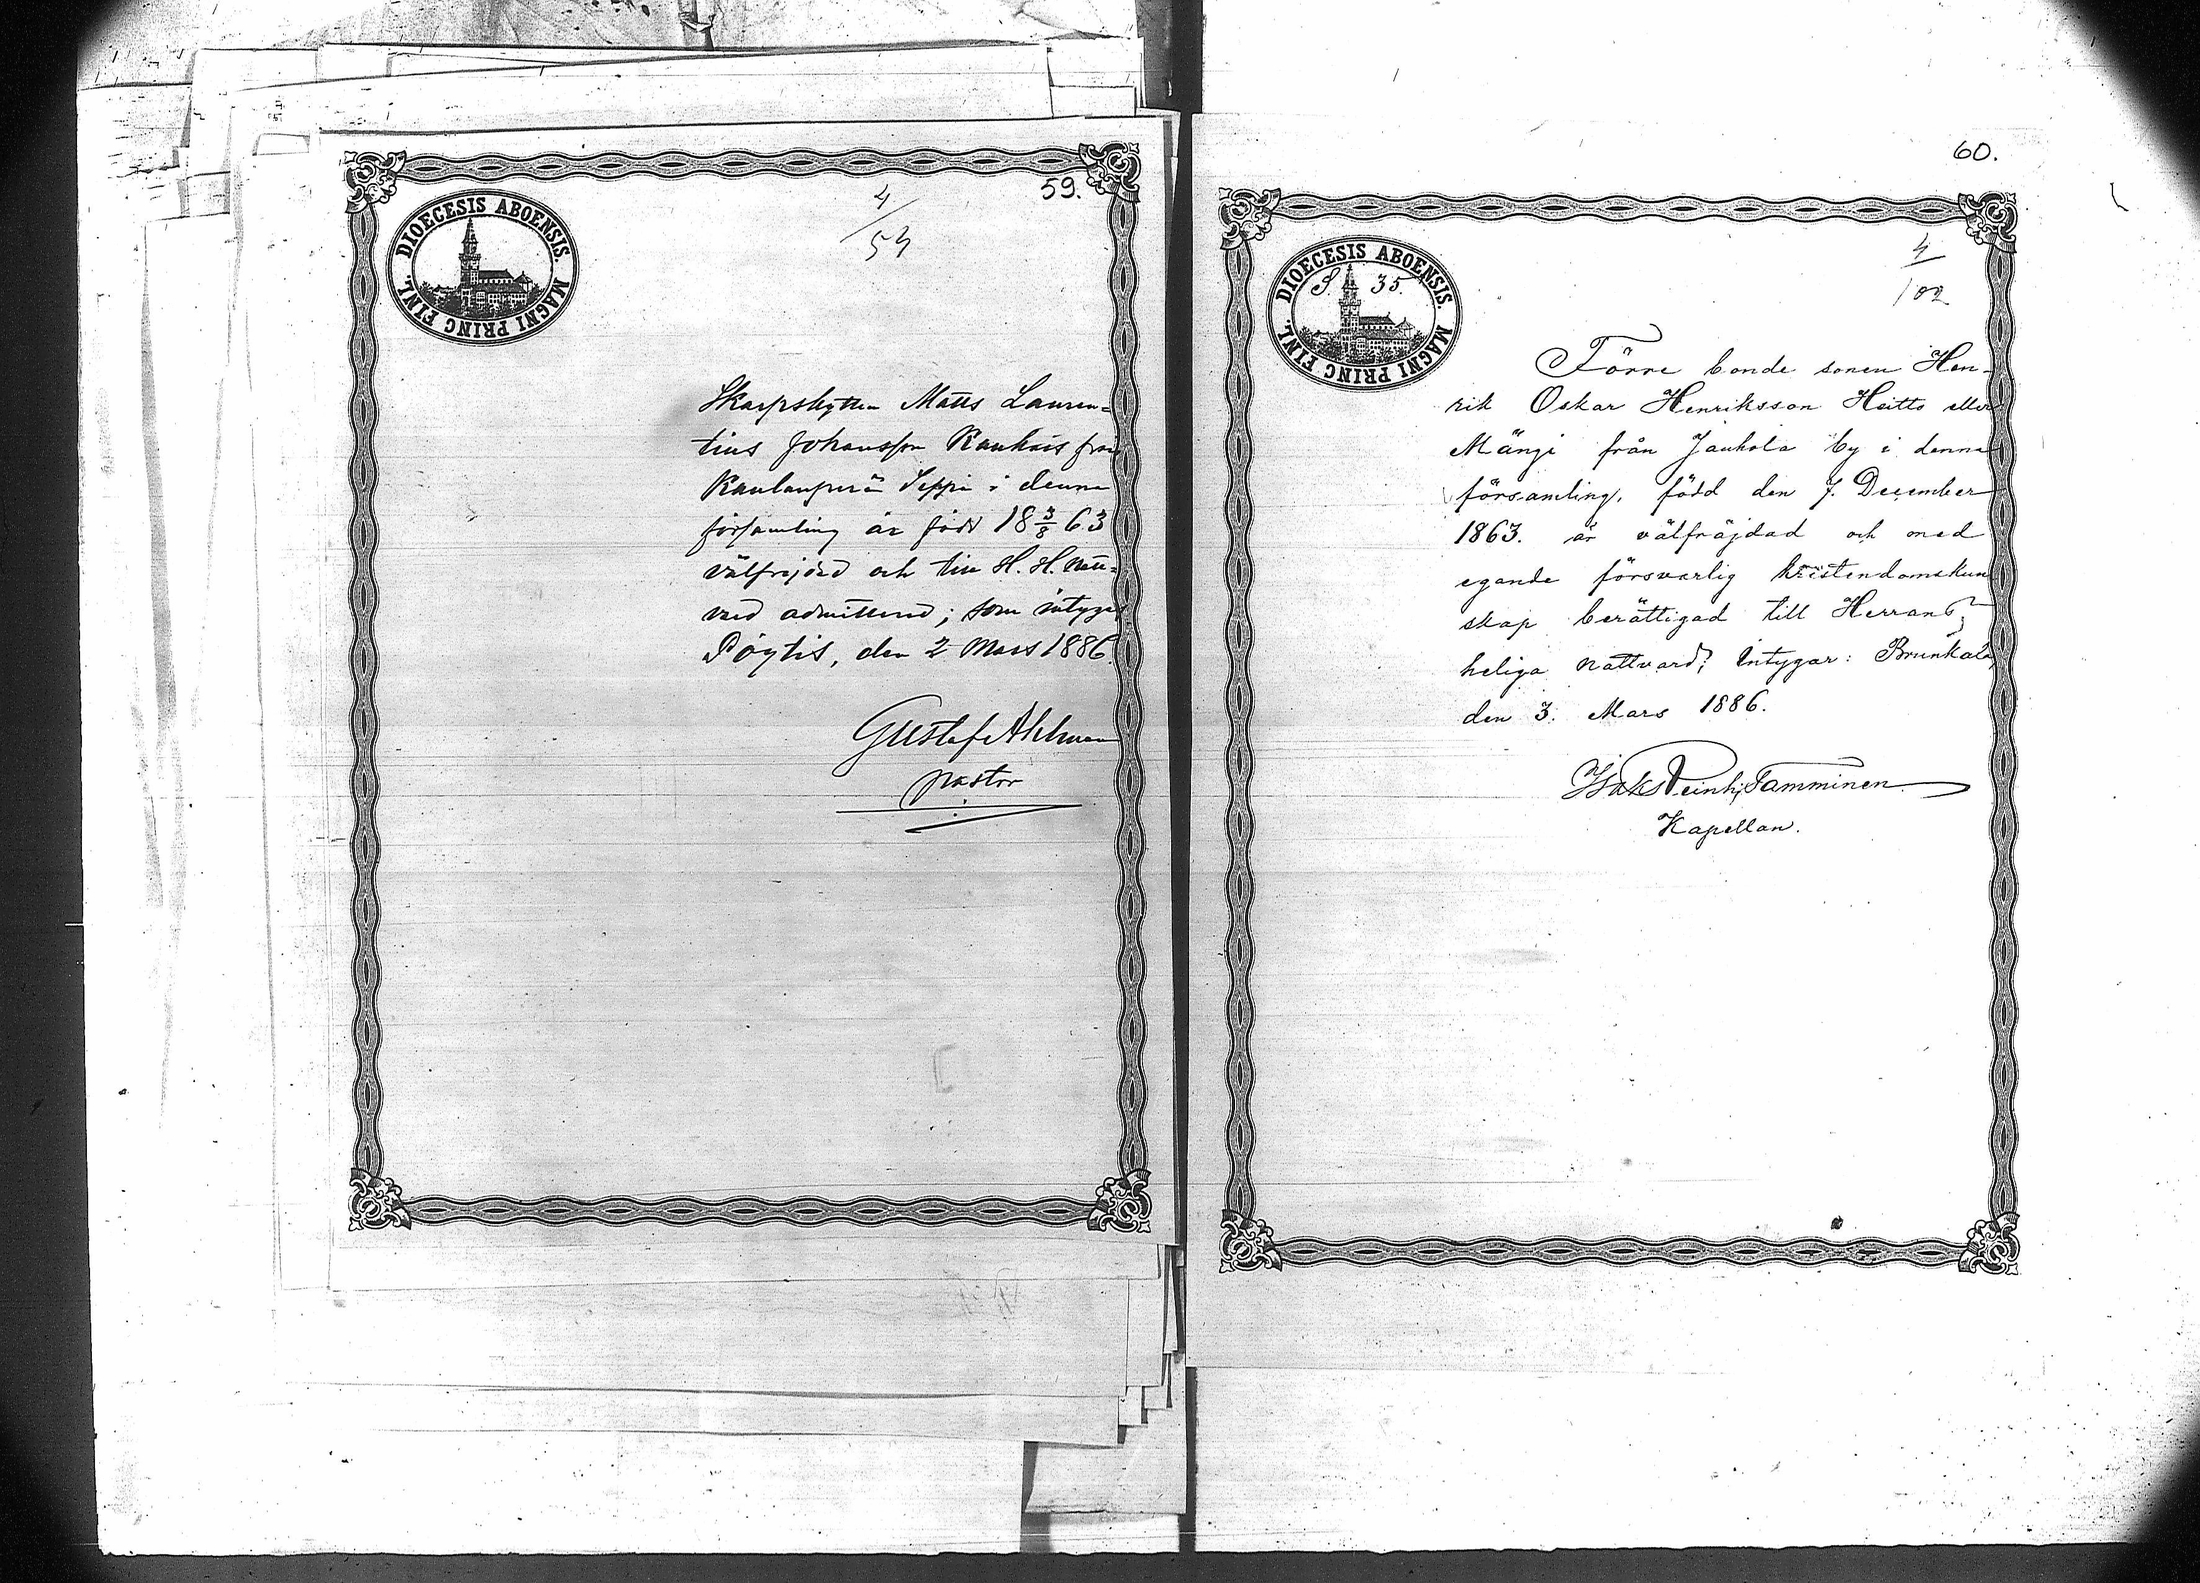 59.
4
54
DIOECESIS ABOENSIS. MAGNI PRINC FINL.
Skarpskytten Matts Lauren=
tius Johansson Kaukais från
Kaulanperä Seppi i denna
församling är född 18 3/8 63
välfrejdad och till H. H. natt=
vard admitterad; som intygas
Pöytis, den 2 Mars 1886.
Gustaf Ahlman
pastor
60.
4
102
DIOECESIS ABOENSIS. MAGNI PRINC FINL.
S. 35.
Förre bonde sonen Hen-
rik Oskar Henriksson Heitto eller
Mängi från Jauhola by i denna
församling, född den 7. December
1863. är välfräjdad och med
egande försvarlig kristendomskun
skap berättigad till Herrans
heliga nattvard; Intygar: Brunkala,
den 3. Mars 1886.
Tamminen
Kapellan.